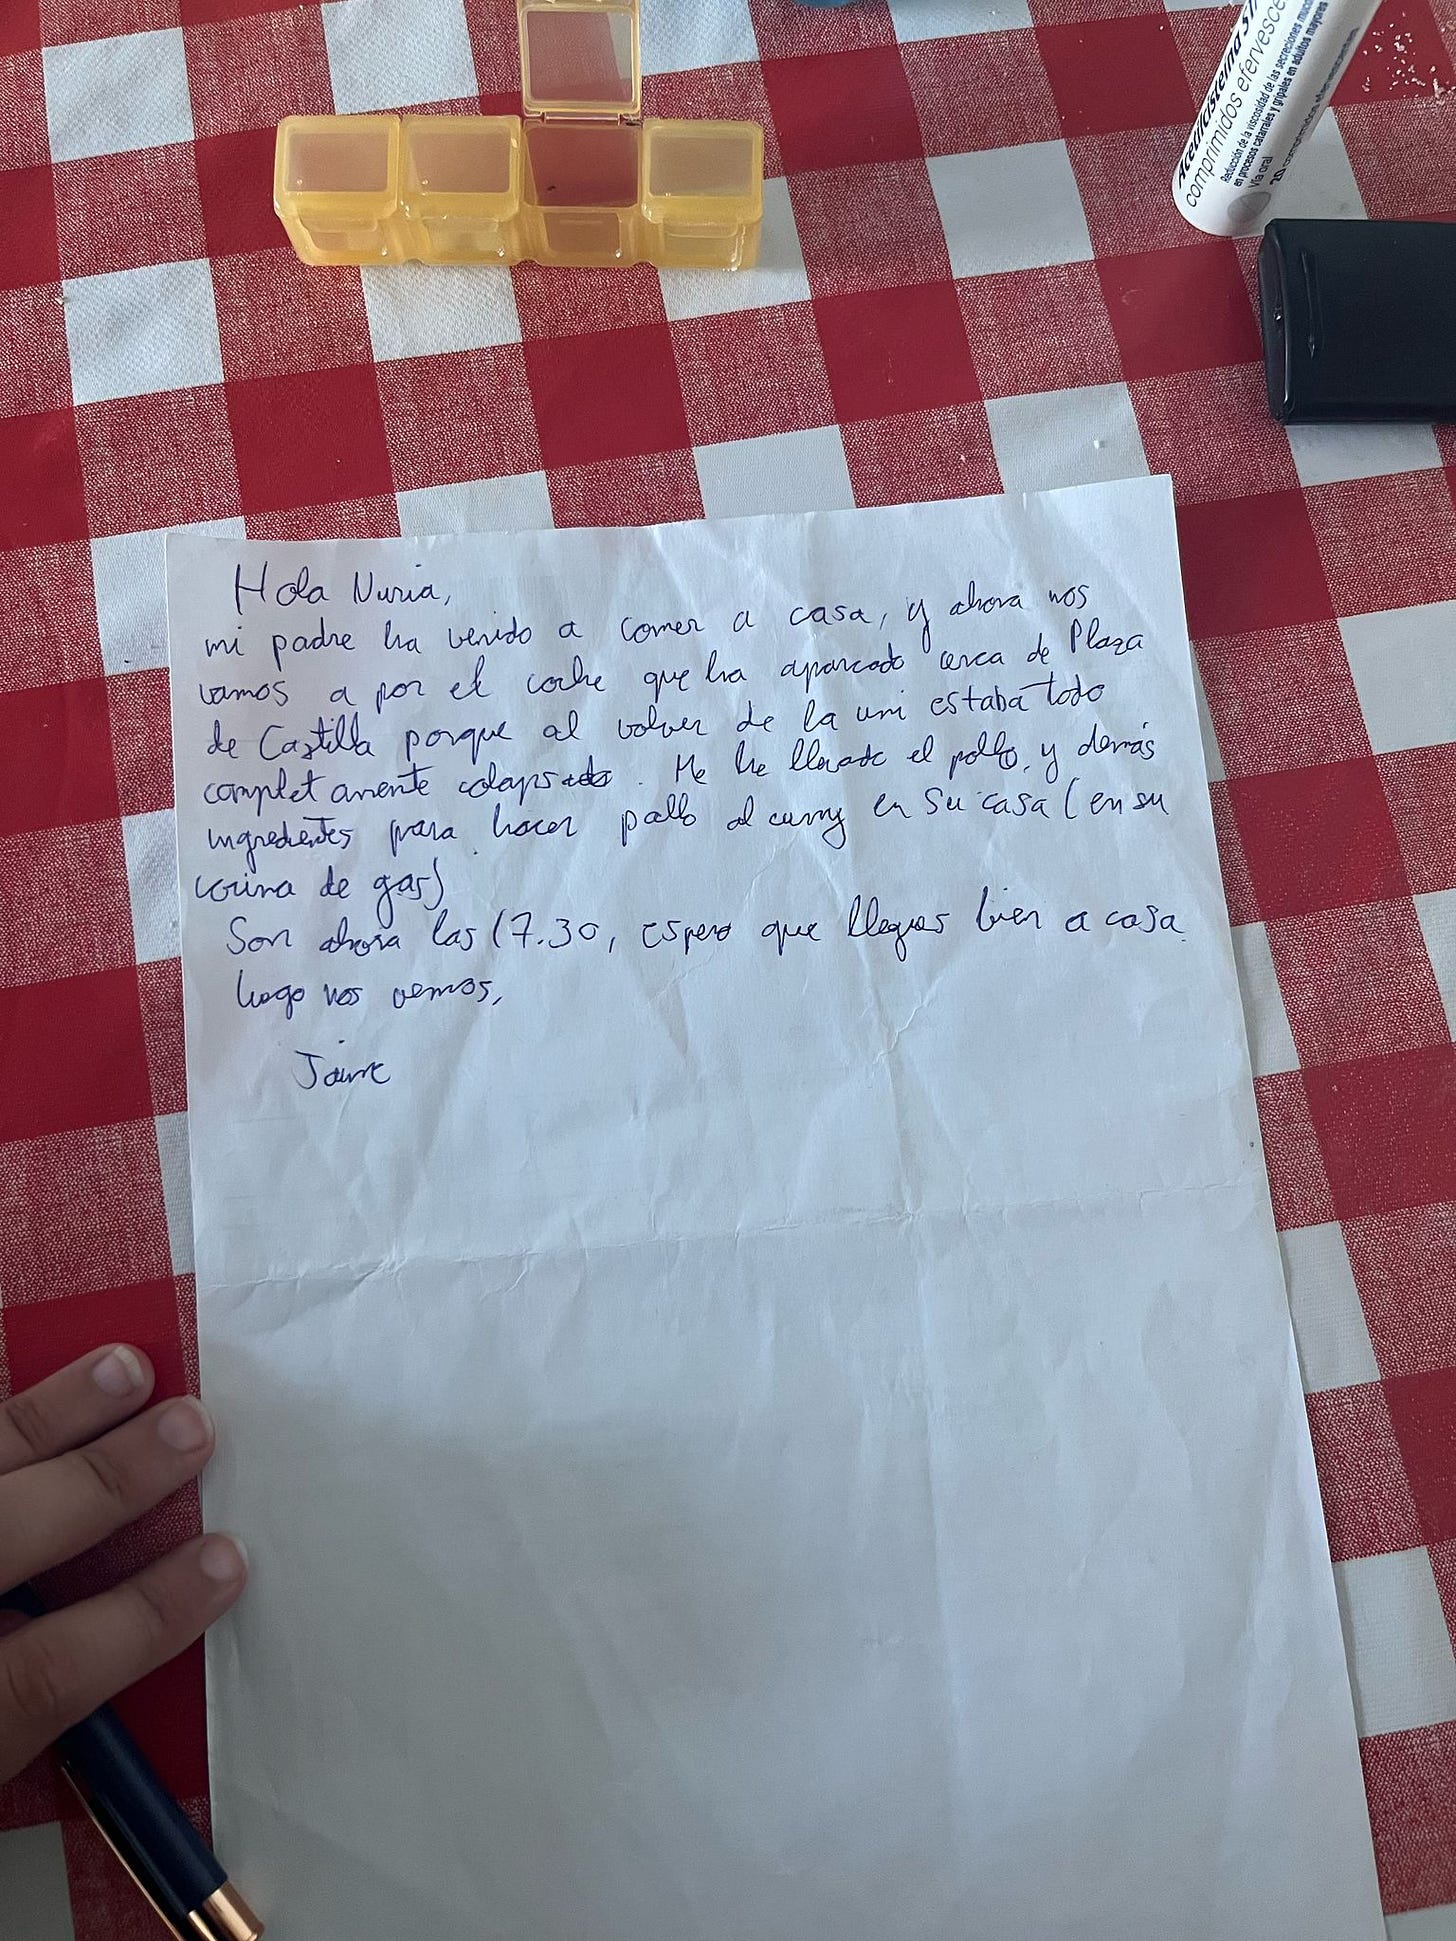 Acetilcisteína ST
comprimidos efervesce
Reducción de la viscosidad de las secreciones muco
en procesos catarrales y gripales en adultos mayores
Vía oral
20 comprimidos efervescentes
Hola Nuria,
mi padre ha venido a comer a casa, y ahora nos
vamos a por el coche que ha aparcado cerca de Plaza
de Castilla porque al volver de la uni estaba todo
completamente colapsado. Me he llevado el pollo, y demás
ingredientes para hacer pollo al curry en su casa (en su
cocina de gas)
Son ahora las 17.30, espero que llegues bien a casa.
luego nos vemos,
Jaime